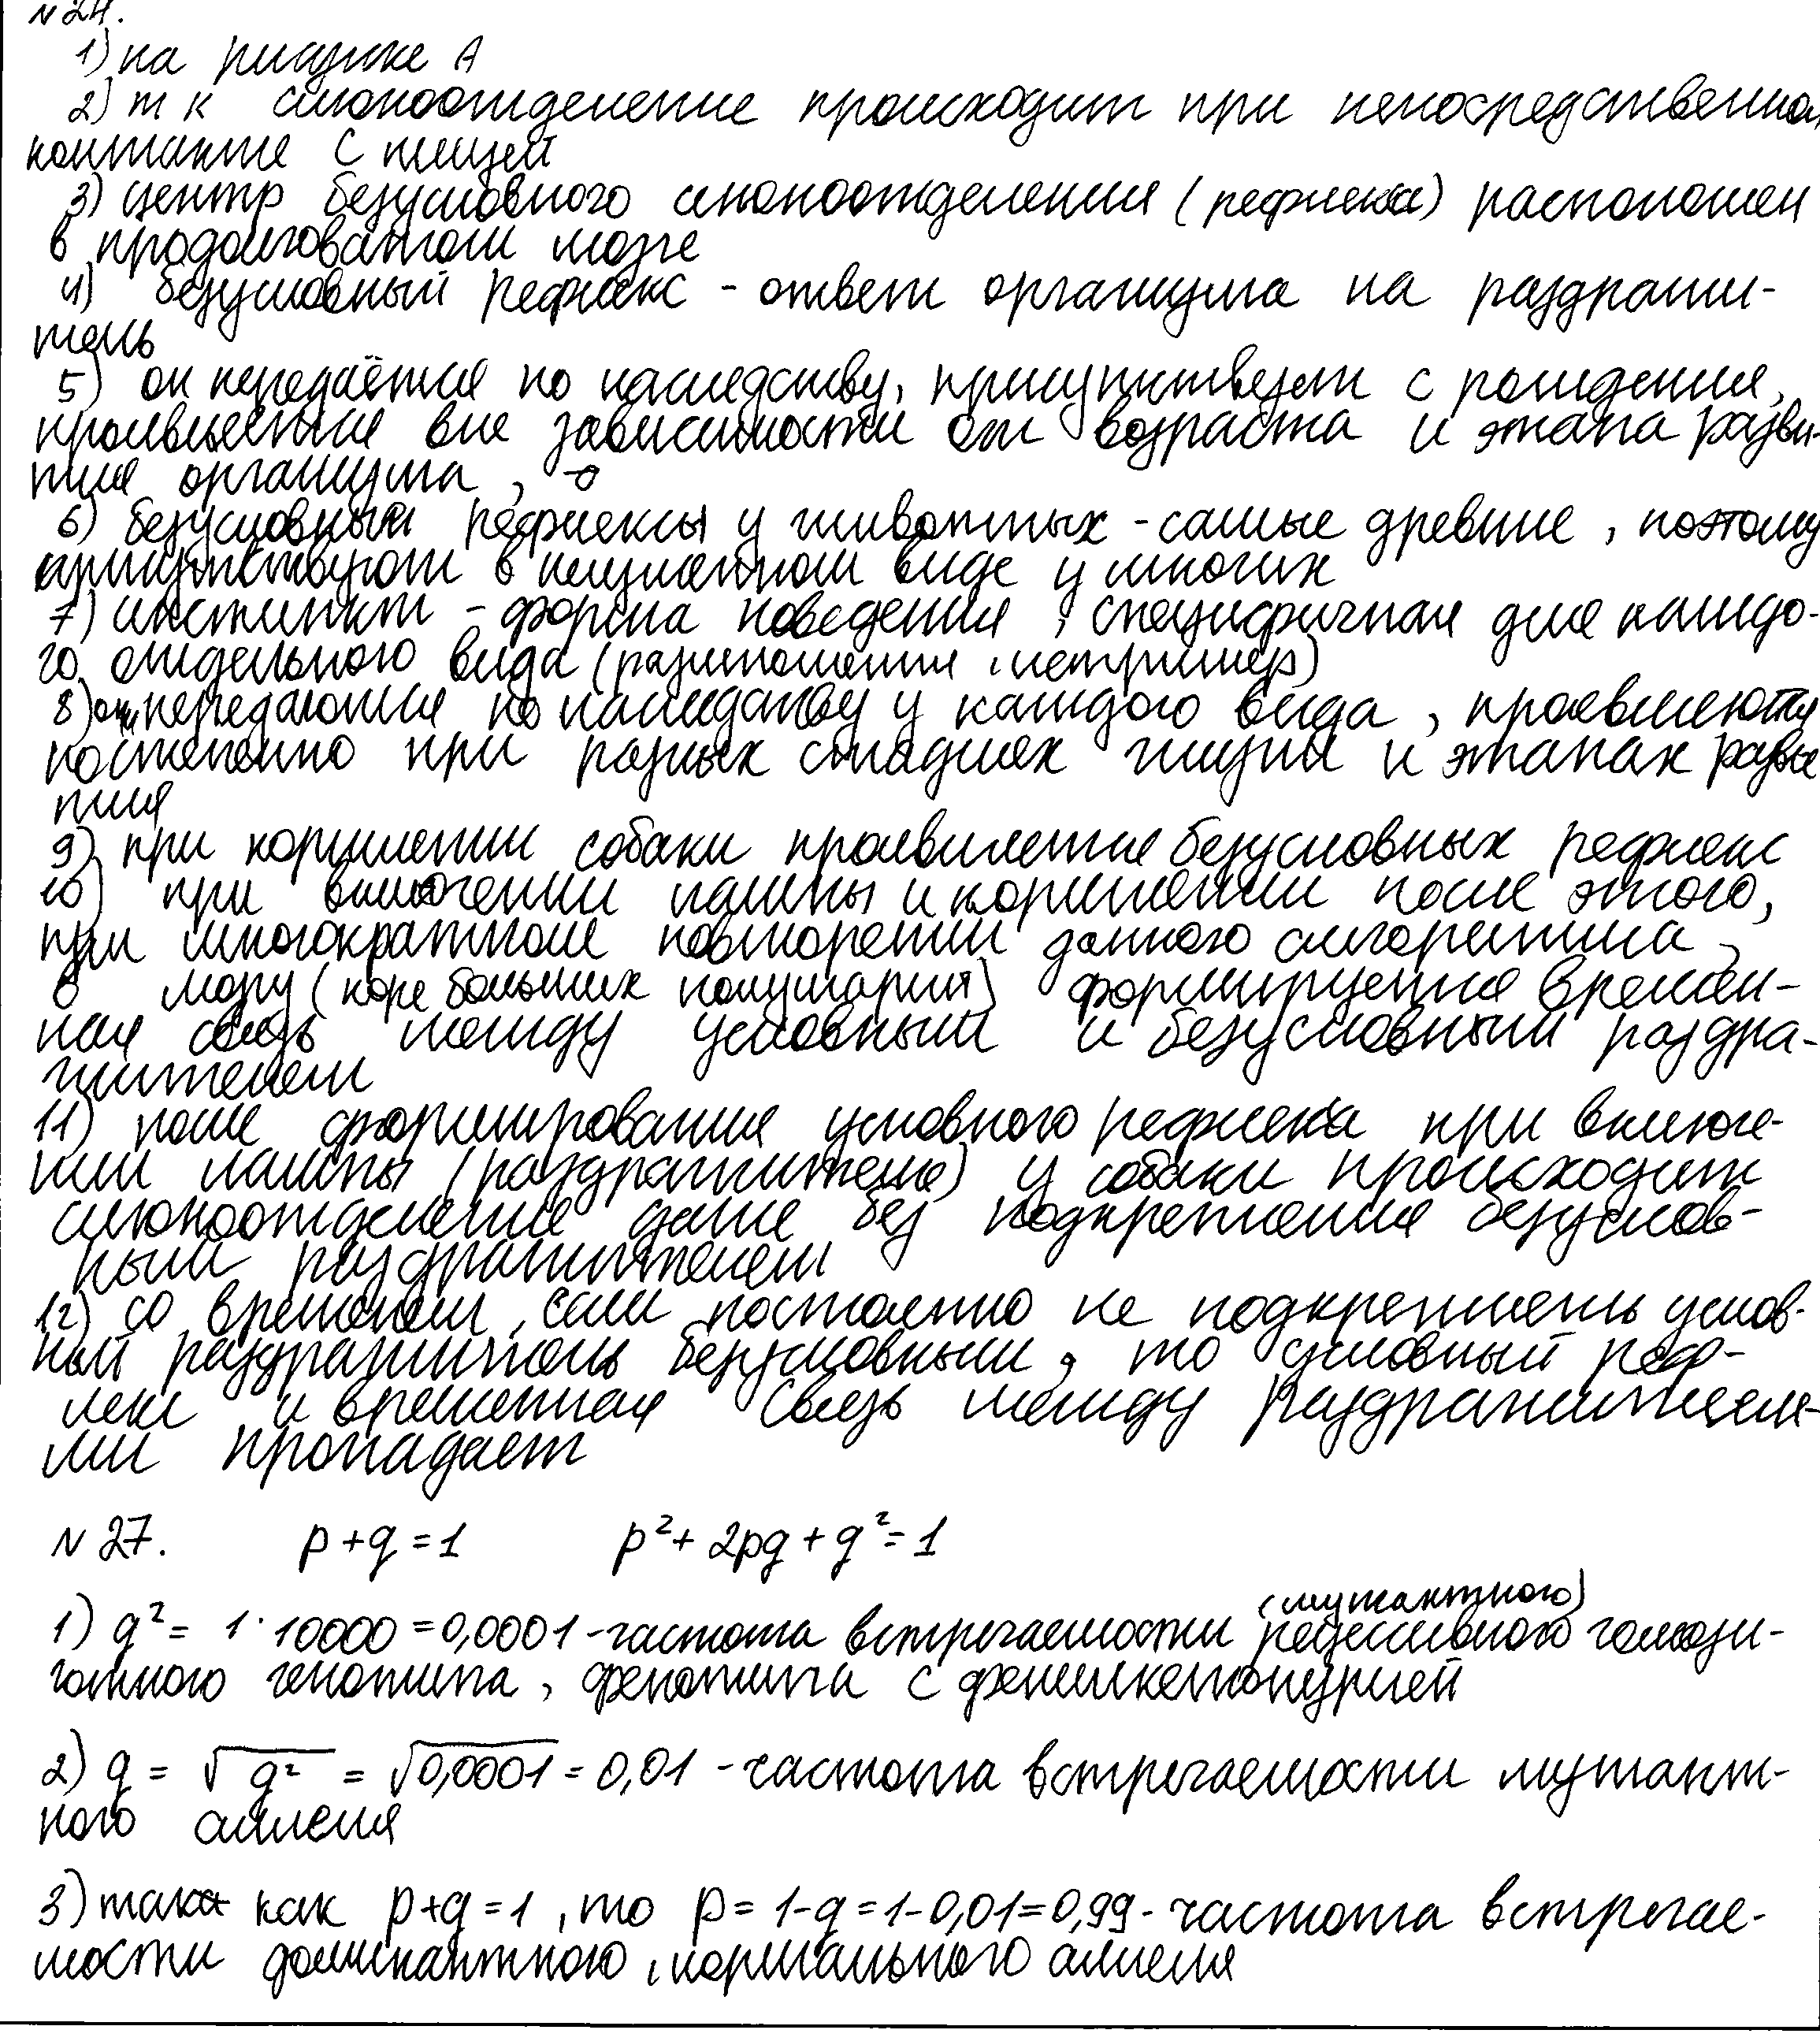 N 24.
1) на рисунке А
2) т к слюноотделение происходит при непосредственном
контакте с пищей
3) центр безусловного слюноотделения (рефлекса) расположен
в продолговатом мозге
4) безусловный рефлекс - ответ организма на раздражи-
тель
5) он передаётся по наследству, присутствует с рождения,
проявляется вне зависимости от возраста и этапа разви-
тия организма,
6) безусловный рефлексы у животных - самые древние, поэтому
присутствуют в неизменном виде у многих
7) инстинкт - форма поведения, специфичная для каждо-
го отдельного вида (размножения, например)
8) они передаются по наследству у каждого вида, проявляются
постепенно при разных стадиях жизни и этапах разви
тия
9) при кормлении собаки проявляется безусловных рефлекс
10) при включении лампы и кормлении после этого,
при многократном повторении данного алгоритма,
в мозгу (коре больших полушарий) формируется времен-
ная связь между условным и безусловным раздра-
жителем
11) после формирования условного рефлекса при включе-
нии лампы (раздражителя) у собаки происходит
слюноотделение даже без подкрепления безуслов-
ным раздражителем
12) со временем, если постоянно не подкреплять услов-
ный раздражитель безусловным, то условный реф-
лекс и временная связь между раздражителя-
ми пропадает
N 27. p+q=1 p²+2pq+q²=1
(мутантного)
1) q² = 1·10000 = 0,0001 - частота встречаемости рецессивного гомози-
готного генотипа, фенотипа с фенилкетонурией
2) q = √q² = √0,0001 = 0,01 - частота встречаемости мутант-
ного аллеля
3) так как p+q=1, то p=1-q=1-0,01=0,99 - частота встречае-
мости доминантного, нормального аллеля